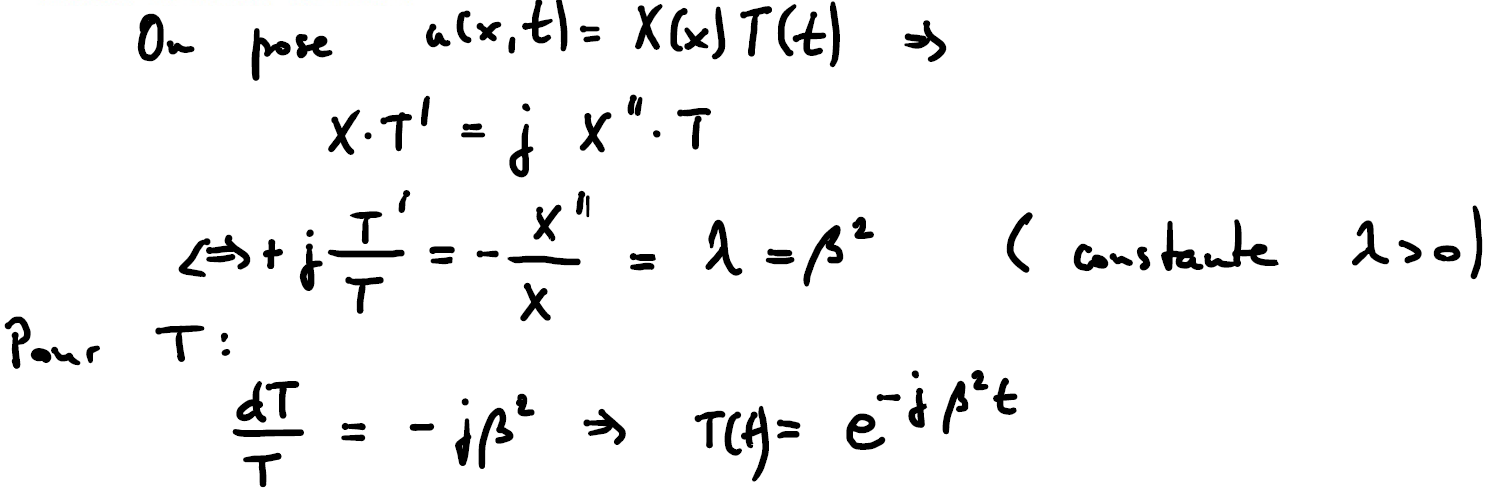 On pose u(x,t) = X(x) T(t) ⇒
X·T' = j X''·T
<=> + j T'/T = - X''/X = λ = β² ( constante λ>0)
Pour T :
dT/T = - jβ² ⇒ T(t) = e^{-jβ²t}